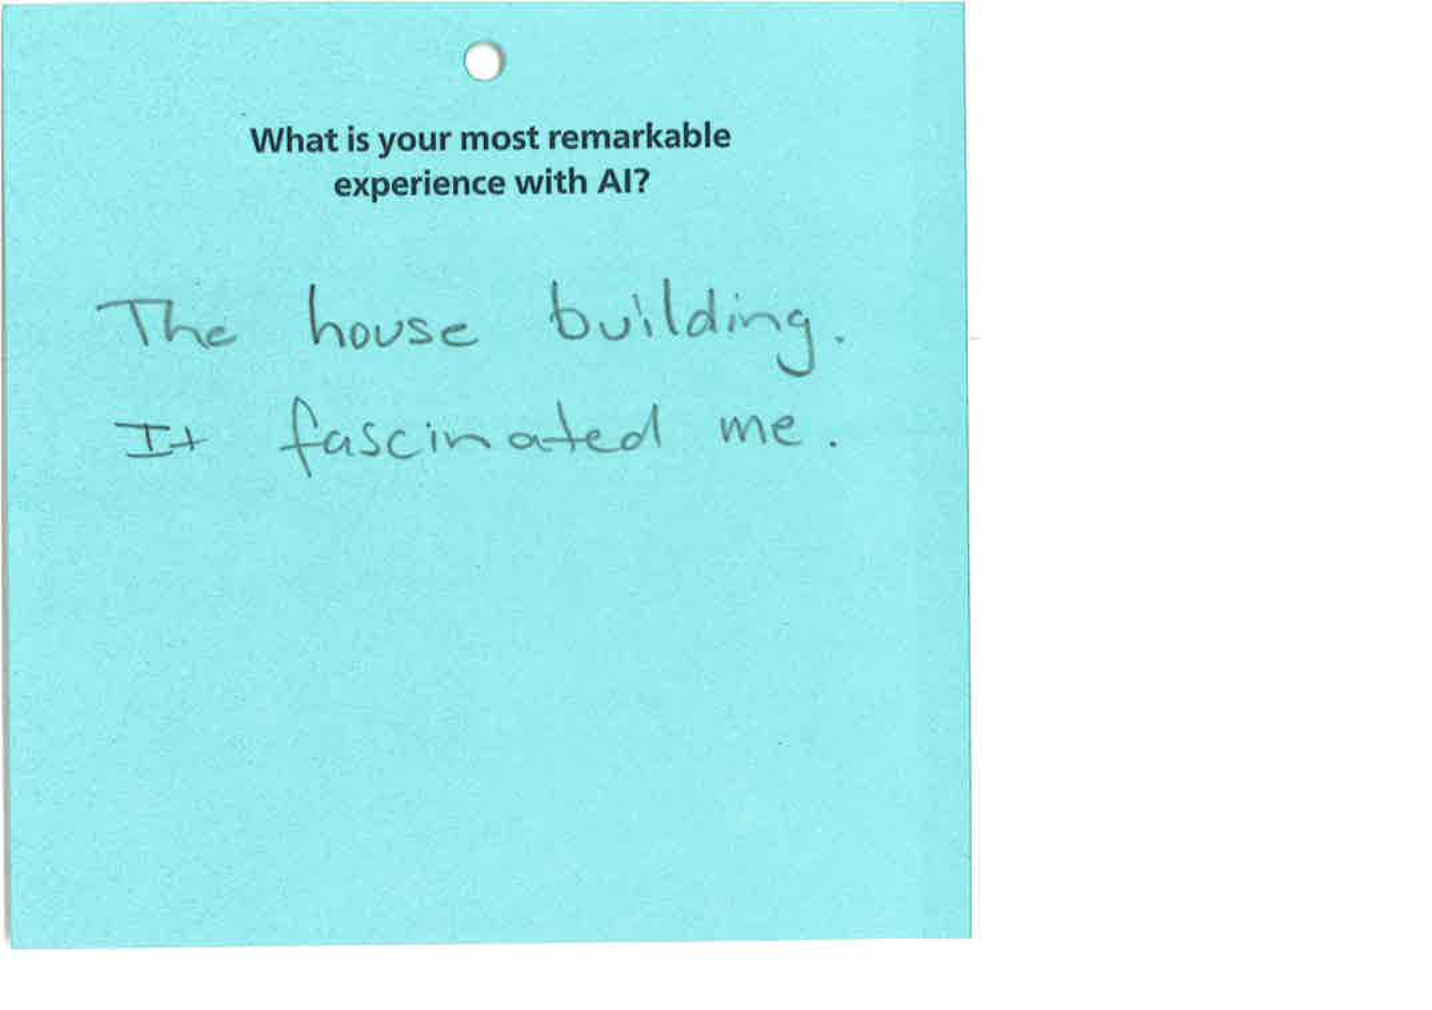 What is your most remarkable
experience with AI?
The house building.
It fascinated me.